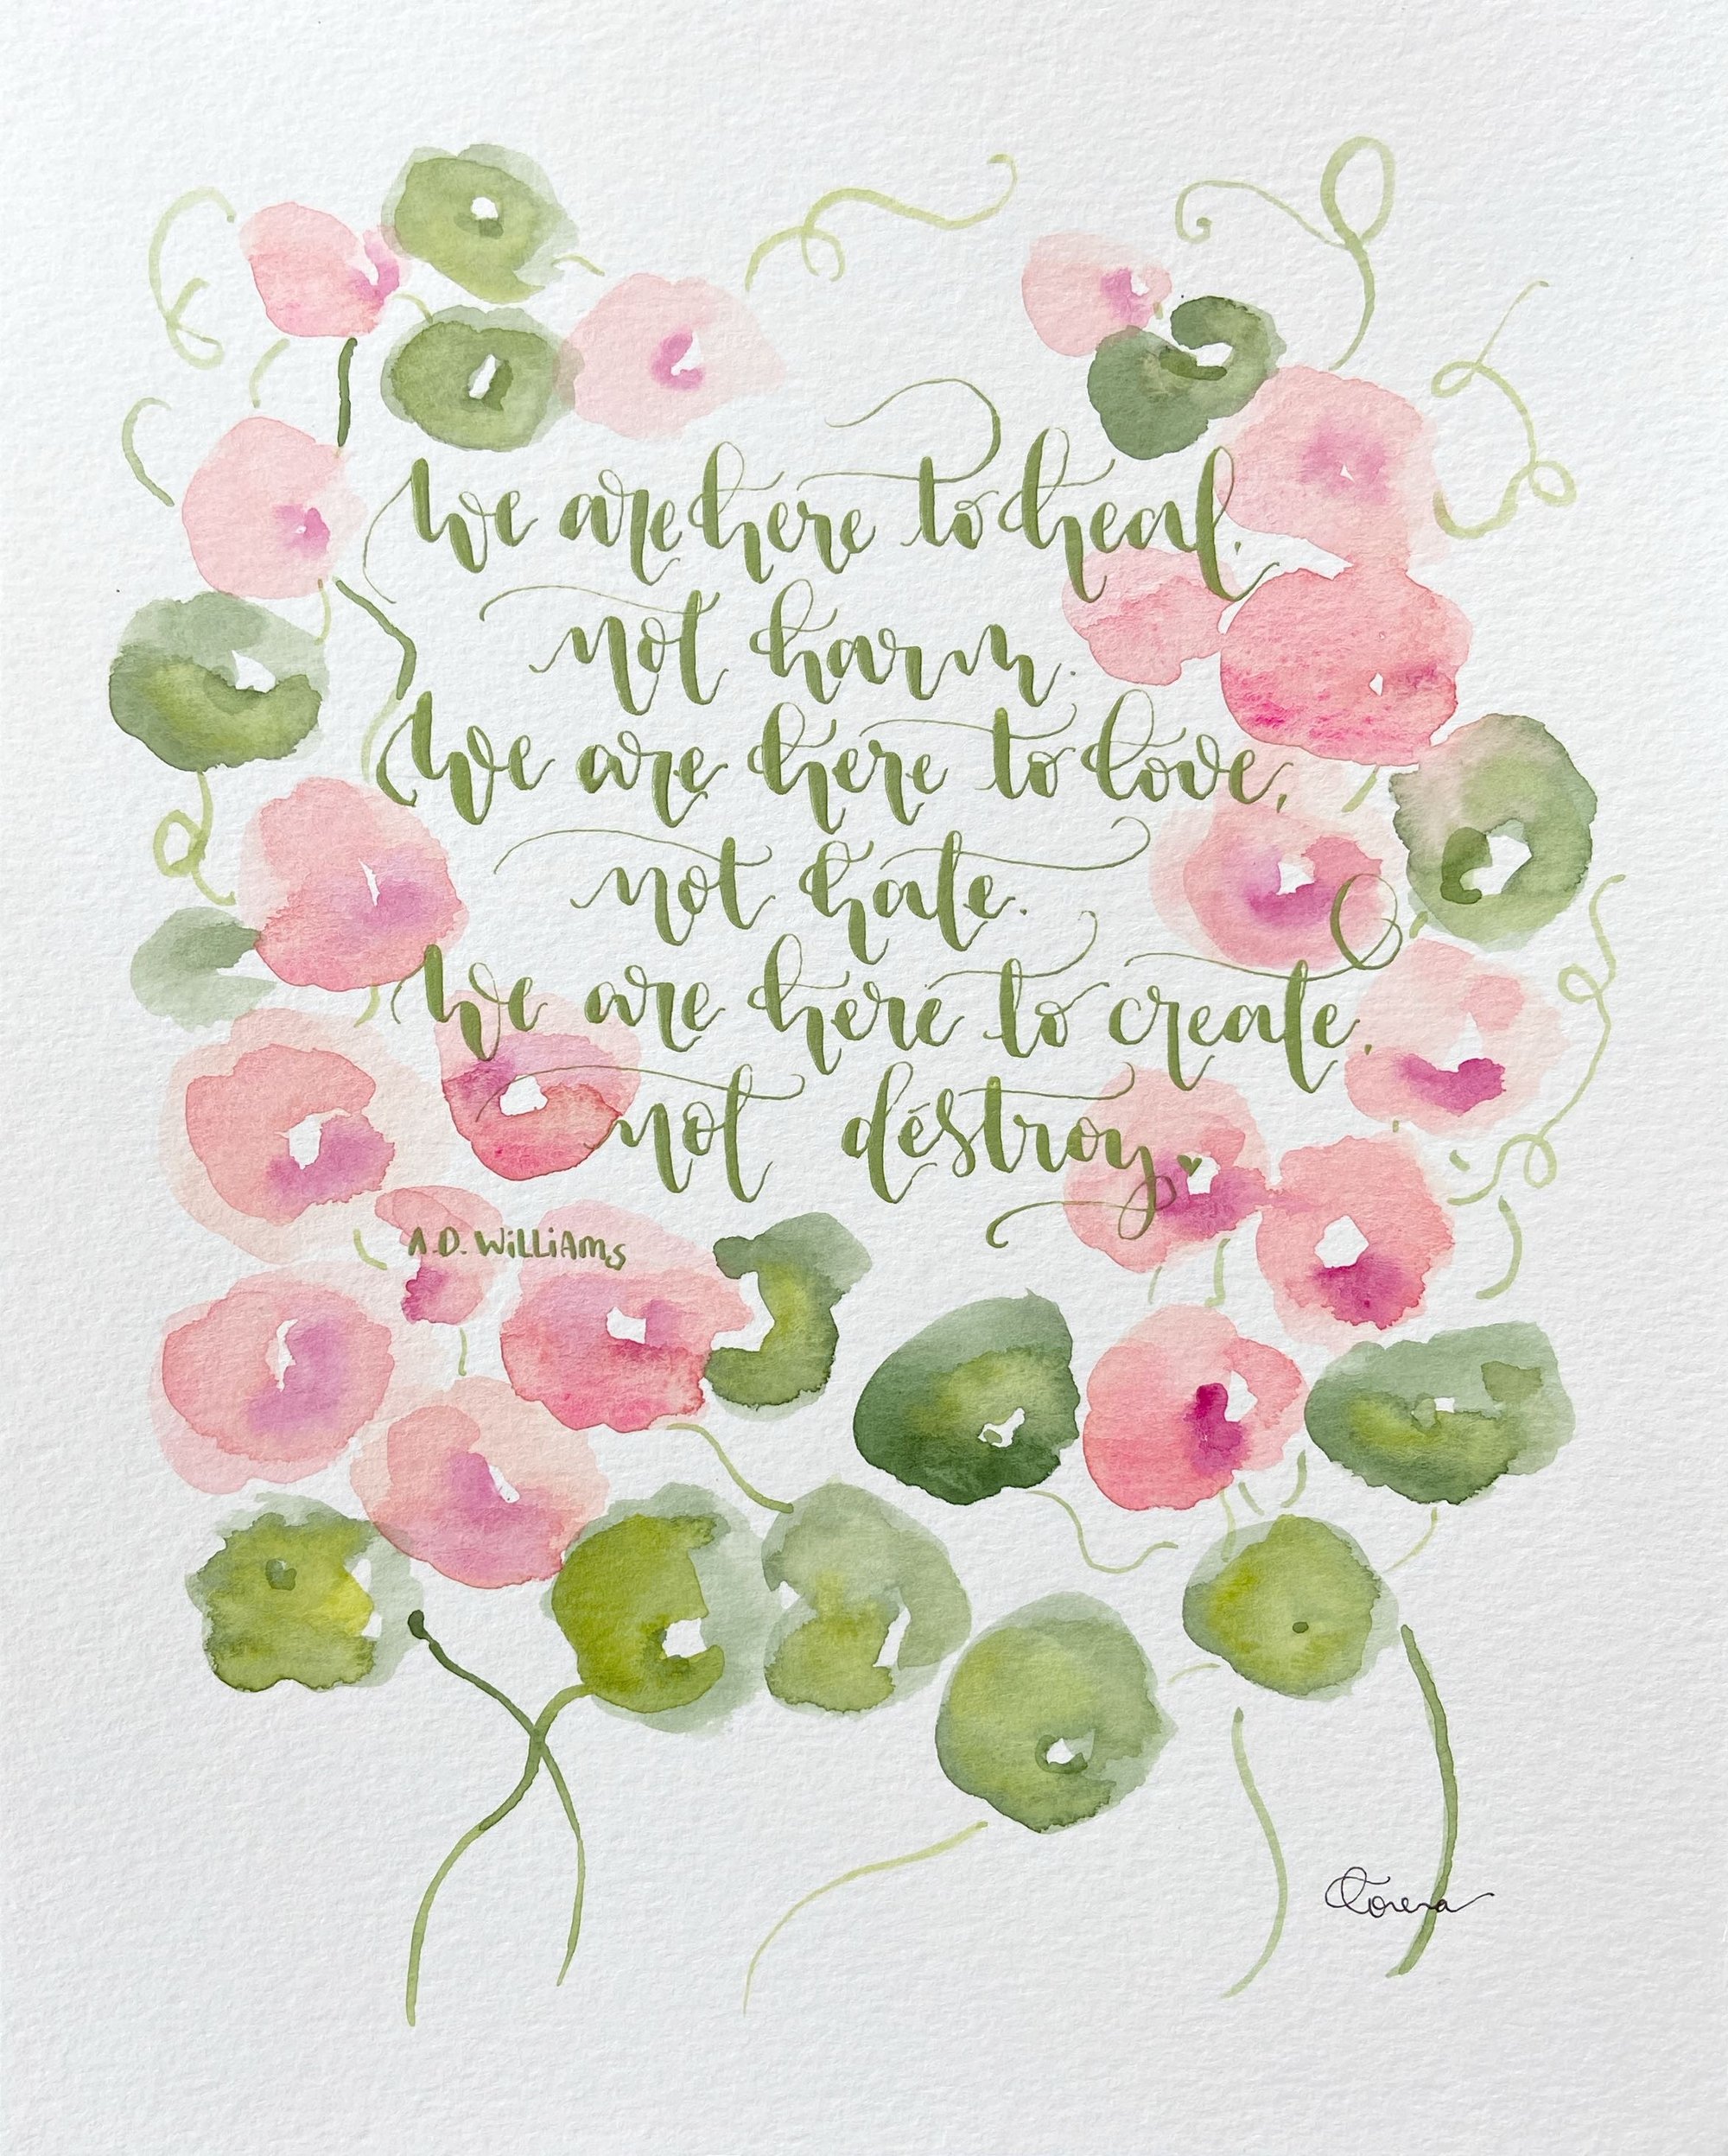 We are here to heal,
not harm.
We are here to love,
not hate.
We are here to create,
not destroy
A.D. WiLLiAMS
Lorena